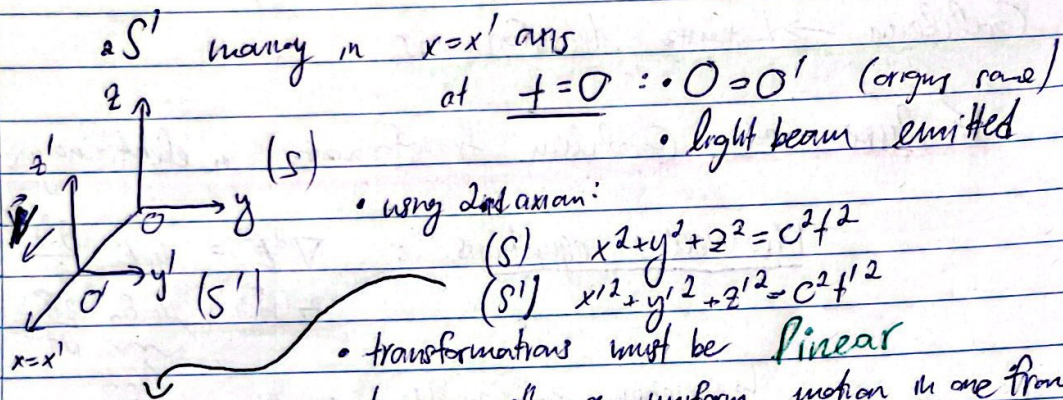 S' moving in x=x' axis
at t=0 : • O=O' (origins same)
• light beam emitted
z
z'
(S)
O
y
• using 2nd axiom:
(S) x²+y²+z²=c²t²
O'
y'
(S')
(S') x'²+y'²+z'²=c²t'²
x=x'
• transformations must be linear
uniform motion in one